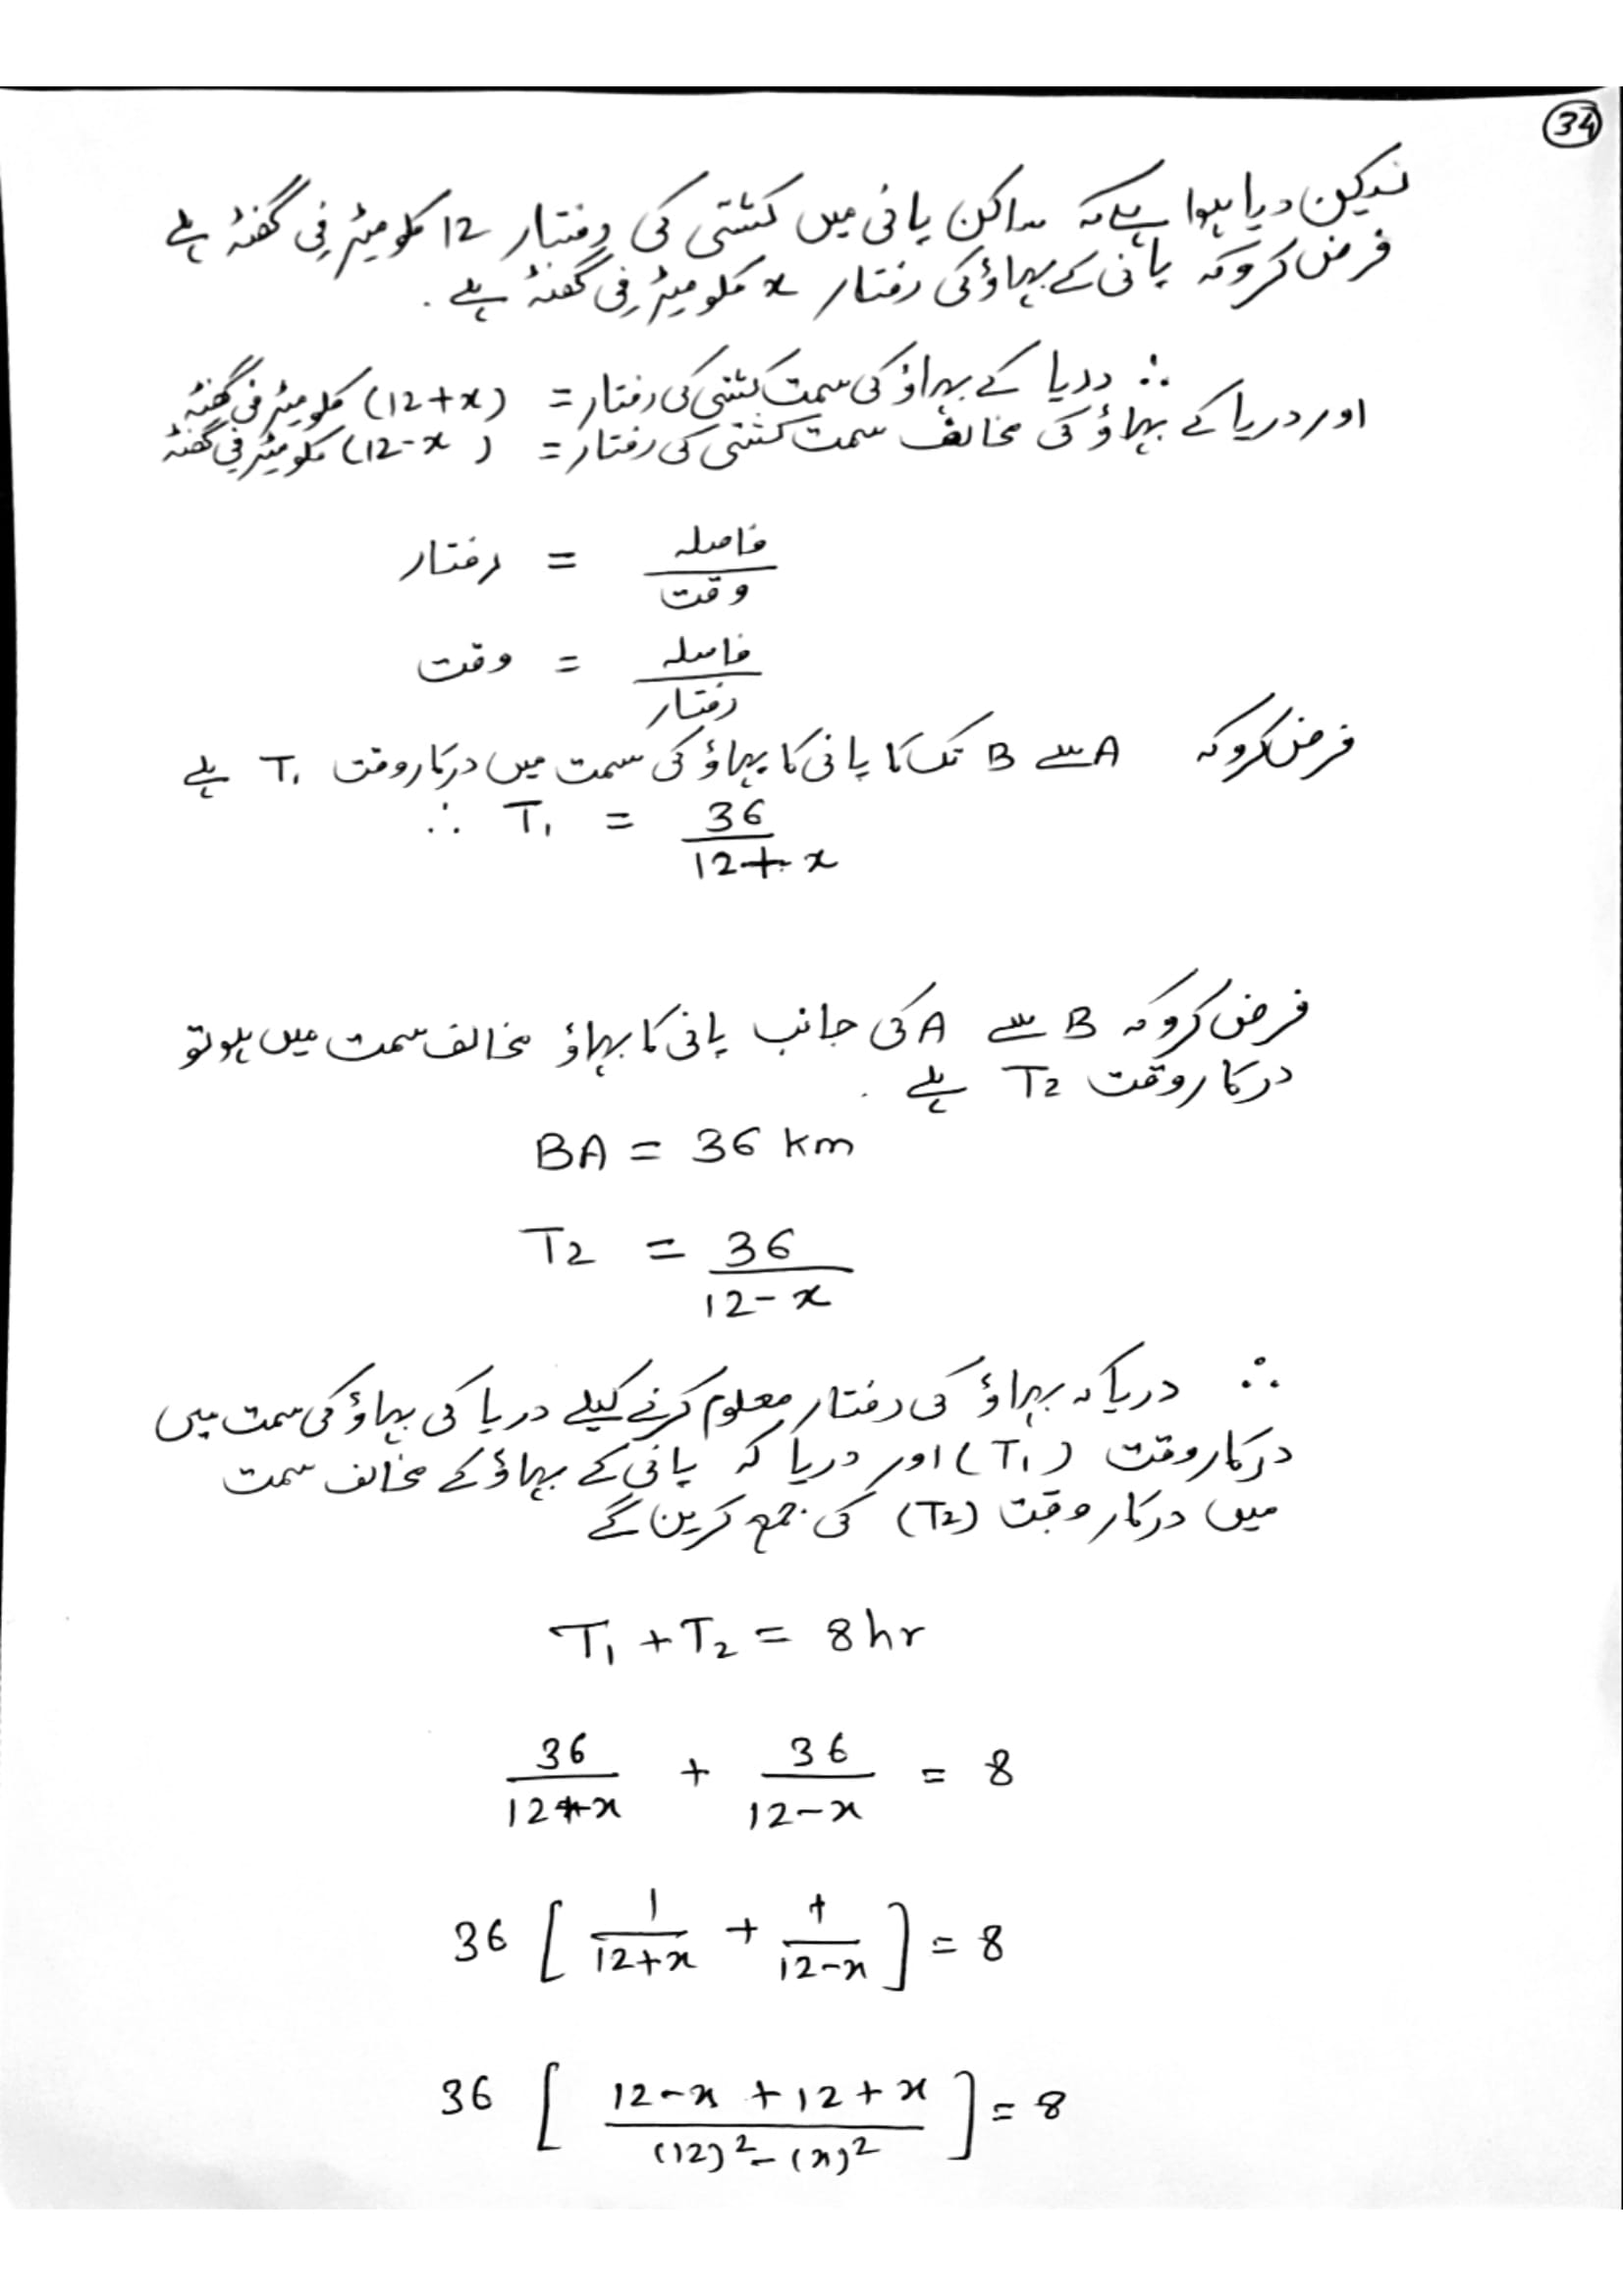 34
لیکن دیا ہوا ہے کہ ساکن پانی میں کشتی کی رفتار 12 کلومیٹر فی گھنٹہ ہے
فرض کرو کہ پانی کے بہاؤ کی رفتار x کلومیٹر فی گھنٹہ ہے .
∴ دریا کے بہاؤ کی سمت کشتی کی رفتار = (12+x) کلومیٹر فی گھنٹہ
اور دریا کے بہاؤ کی مخالف سمت کشتی کی رفتار = (12-x) کلومیٹر فی گھنٹہ
رفتار = فاصلہ / وقت
وقت = فاصلہ / رفتار
فرض کرو کہ A سے B تک کا پانی کا بہاؤ کی سمت میں درکار وقت T1 ہے
∴ T1 = 36 / 12+x
فرض کرو کہ B سے A کی جانب پانی کا بہاؤ مخالف سمت میں ہو تو
درکار وقت T2 ہے .
BA = 36 km
T2 = 36 / 12-x
∴ دریا کہ بہاؤ کی رفتار معلوم کرنے کیلے دریا کی بہاؤ کی سمت میں
درکار وقت (T1) اور دریا کہ پانی کے بہاؤ کے مخالف سمت
میں درکار وقت (T2) کی جمع کرین گے
T1 + T2 = 8 hr
36 / 12+x + 36 / 12-x = 8
36 [ 1 / 12+x + 1 / 12-x ] = 8
36 [ 12-x + 12+x / (12)² - (x)² ] = 8